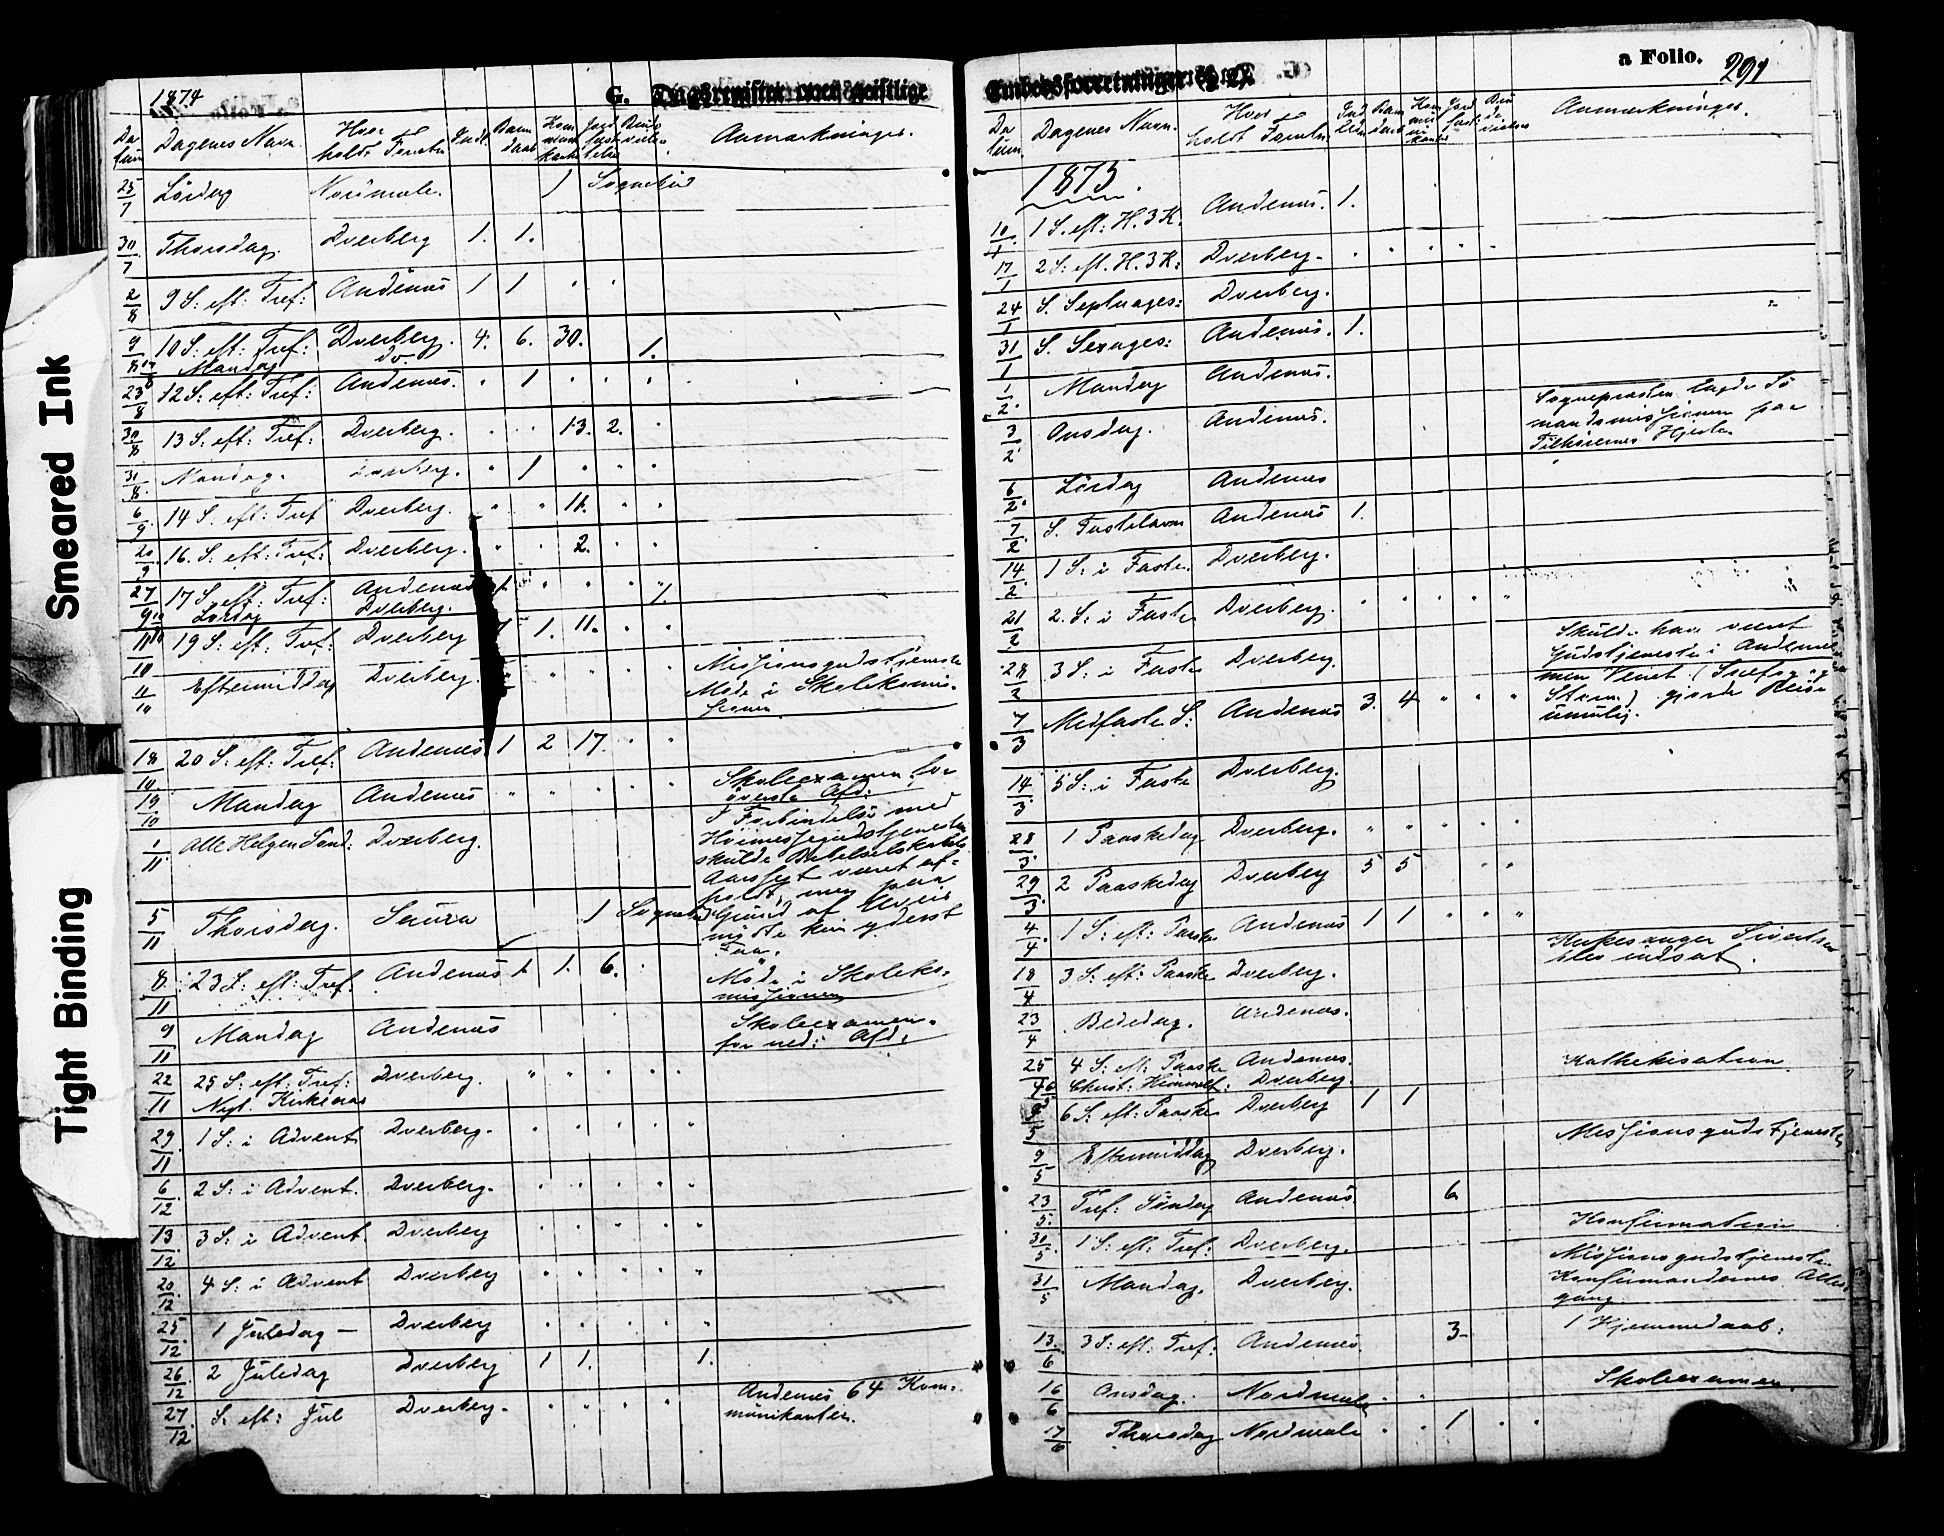 Smeared Ink
Tight Binding
1874
G. Dagsregister over geistlige
Datum Dagenes Navn Hvor holdt Forretn. Indl. Barn daab Kommunikanter Jordfæstelse Anmærkninger.
25/7 Lørdag Nordmele. 1 Sognebud
30/7 Thorsdag. Dverberg 1. 1.
2/8 9 S: eft: Tref: Andenæs 1 1 " "
9/8 10 S: eft: Tref: Dverberg. 4. 6. 30.
Mandag do. 1.
23/8 12 S: eft: Tref: Andenæs. " 1 " " "
30/8 13 S: eft: Tref: Dverberg. " " 13. 2. "
31/8 Mandag. Dverberg. " 1 " " "
6/9 14 S. eft: Tref Dverberg. " " 11. " "
20/9 16. S. eft: Tref: Dverberg. " " 2. " "
27/9 17 S. eft: Tref: Andenæs 1 " " " "
Lørdag Dverberg. 1.
11/10 19 S: eft: Tref: Dverberg 1. 11. " "
11/10 Eftermiddag Dverberg. " " " " " Missionsgudstjeneste
Møde i Skolekomis-
sionen
18/10 20 S: eft: Tref: Andenæs 1 2 17. " "
19/10 Mandag Andenæs " " " " " Skoleexamen for
øverste Afd:
1/11 Alle Helgen Sønd: Dverberg. I Forbindelse med
Høimessegudstjenesten
skulde Bibelselskabets
Aarsfest været af-
holdt, men paa
Grund af Uveir
mødte kun yderst
Faa.
5/11 Thorsdag. Saura 1 Sognebud
8/11 23 S. eft: Tref. Andenæs 1. 1. 6. " Møde i Skoleko-
missionen
9/11 Mandag Andenæs Skoleexamen
for ned: Afd:
22/11 25 S: eft: Tref: Dverberg. " " " " "
Nyt. Kirkeaar
29/11 1 S: i Advent Dverberg. " " " " "
6/12 2 S: i Advent. Dverberg. " " " " "
13/12 3 S: i Advent. Dverberg " " " " "
20/12 4 S: i Advent Dverberg " " " " "
25/12 1 Juledag — Dverberg " " " " "
26/12 2 Juledag Dverberg 1 1. 1.
27/12 S. eft: Jul Dverberg. " " " " Andenæs 64 Kom-
munikanter.
Embedsforretninger
a Folio. 291
Datum Dagenes Navn. Hvor holdt Forretn. Anmærkninger.
1875.
10/1 1 S. eft: H. 3 K. Andenæs. 1.
17/1 2 S: eft. H. 3 K: Dverberg. " " " " "
24/1 S. Septuages: Dverberg.
31/1 S. Sexages: Andenæs. 1.
1/2 Mandag Andenæs.
3/2 Onsdag. Andenæs. Sognepresten lagde Sø
mandsmissionen paa
Tilhørernes Hjerte.
6/2 Lørdag Andenæs
7/2 S. Fastelavn Andenæs 1.
14/2 1 S: i Faste Dverberg.
21/2 2. S: i Faste Dverberg. " " " " "
28/2 3 S: i Faste Dverberg. Skulde have været
Gudstjeneste i Andenæs
men Veiret (Snefog og
Storm) gjorde Reise
umulig.
7/3 Midfaste S: Andenæs 3. 4 " " "
14/3 5 S: i Faste Dverberg.
28/3 1 Paaskedag Dverberg. " " " " "
29/3 2 Paaskedag Dverberg 5 5 " "
4/4 1 S: eft: Paaske Andenæs 1 1 " " "
18/4 3 S. eft: Paaske Dverberg. Kirkesanger Sivertsen
blev indsat.
23/4 Bededag. Andenæs.
25/4 4 S: eft: Paaske Andenæs.
Christ: Himmelf: Dverberg. Kathekisation
9/5 6 S: eft: Paaske Dverberg 1 1
9/5 Eftermiddag Dverberg. Missionsgudstjeneste
23/5 Tref: Søndag Andenæs 6
30/5 1 S: eft: Tref: Dverberg. Konfirmation
31/5 Mandag. Dverberg. Missionsgudstjeneste.
Konfirmandernes Alter
gang.
13/6 3 S: eft: Tref: Andenæs. 3 1 Hjemmedaab.
16/6 Onsdag. Nordmele " " Skoleexamen.
17/6 Thorsdag Nordmele " " 1 " "